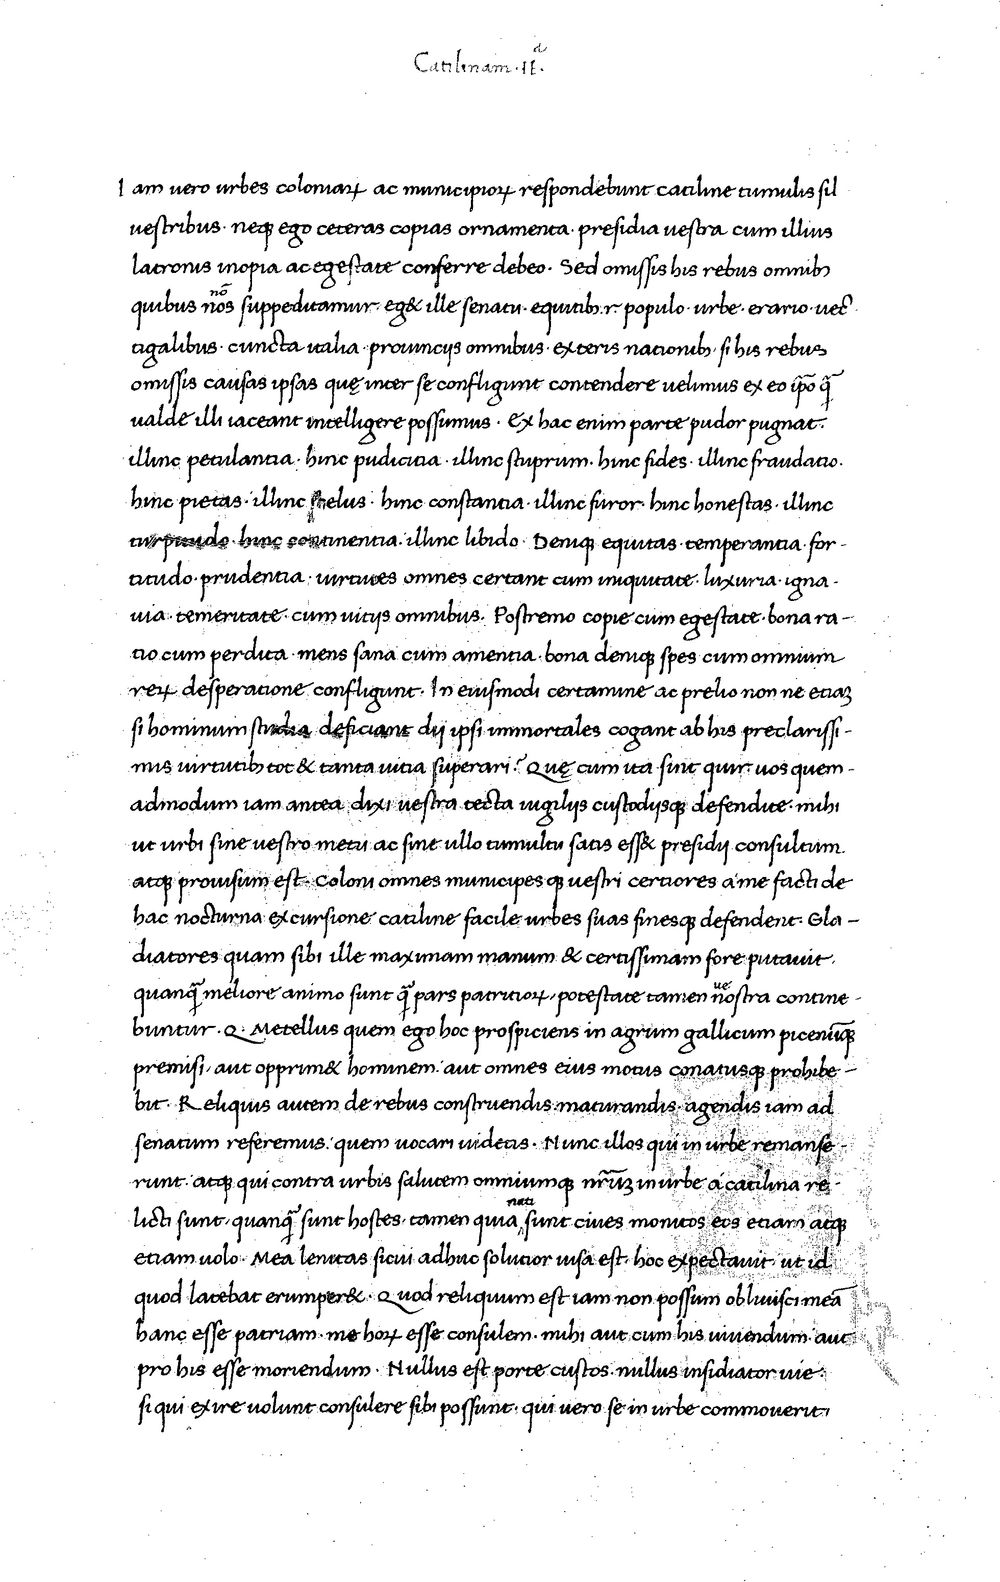 Catilinam · II^a ·
Iam uero urbes coloniaꝝ ac municipioꝝ respondebunt catiline tumulis sil
uestribus · neqꝫ ego ceteras copias ornamenta · presidia uestra cum illius
latronis inopia ac egestate conferre debeo · Sed omissis his rebus omnibꝫ
quibus nos nõ suppeditamur · eg& ille senatu · equitibꝫ · r · populo · urbe · erario · uec
tigalibus · cuncta italia · prouincijs omnibus · exteris nationibꝫ · si his rebus
omissis causas ipsas quę inter se confligunt contendere uelimus ex eo ip̃o q̃
ualde illi iaceant intelligere possumus · Ex hac enim parte pudor pugnat ·
illinc petulantia · hinc pudicitia · illinc stuprum · hinc fides · illinc fraudatio ·
hinc pietas · illinc scelus · hinc constantia · illinc furor · hinc honestas · illinc
turpitudo · hinc continentia · illinc libido · Deniqꝫ equitas · temperantia · for-
titudo · prudentia · uirtutes omnes certant cum iniquitate · luxuria · igna-
uia · temeritate · cum uitijs omnibus · Postremo copie cum egestate · bona ra-
tio cum perdita · mens sana cum amentia · bona deniqꝫ spes cum omnium
reꝝ desperatione confligunt · In eiusmodi certamine ac prelio non ne etiaꝫ
si hominum studia deficiant dij ipsi immortales cogant ab his preclarissi-
mis uirtutibꝫ tot & tanta uitia superari? Quę cum ita sint quir · uos quem-
admodum iam antea dixi uestra tecta uigilijs custodijsqꝫ defendite · mihi
ut urbi sine uestro metu ac sine ullo tumultu satis ess& presidij consultum
atqꝫ prouisum est · Coloni omnes municipesqꝫ uestri certiores a me facti de
hac nocturna excursione catiline facile urbes suas finesqꝫ defendent · Gla-
diatores quam sibi ille maximam manum & certissimam fore putauit ·
quanq̃ meliore animo sunt q̃ pars patritioꝝ, potestate tamen nostra ue contine-
buntur · Q · Metellus quem ego hoc prospiciens in agrum gallicum picenũqꝫ
premisi, aut opprim& hominem · aut omnes eius motus conatusqꝫ prohibe-
bit · Reliquis autem de rebus construendis · maturandis · agendis iam ad
senatum referemus · quem uocari uidetis · Nunc illos qui in urbe remanse-
runt · atqꝫ qui contra urbis salutem omniumqꝫ nr̃ũꝫ in urbe a catilina re-
licti sunt, quanq̃ sunt hostes, tamen quia nati sunt ciues monitos eos etiam atqꝫ
etiam uolo · Mea lenitas sicui adhuc solutior uisa est · hoc expectauit · ut id
quod latebat erumper& · Quod reliquum est iam non possum obliuisci meã
hanc esse patriam · me hoꝝ esse consulem · mihi aut cum his uiuendum · aut
pro his esse moriendum · Nullus est porte custos · nullus insidiator uie ·
si qui exire uolunt consulere sibi possunt · qui uero se in urbe commouerit ·